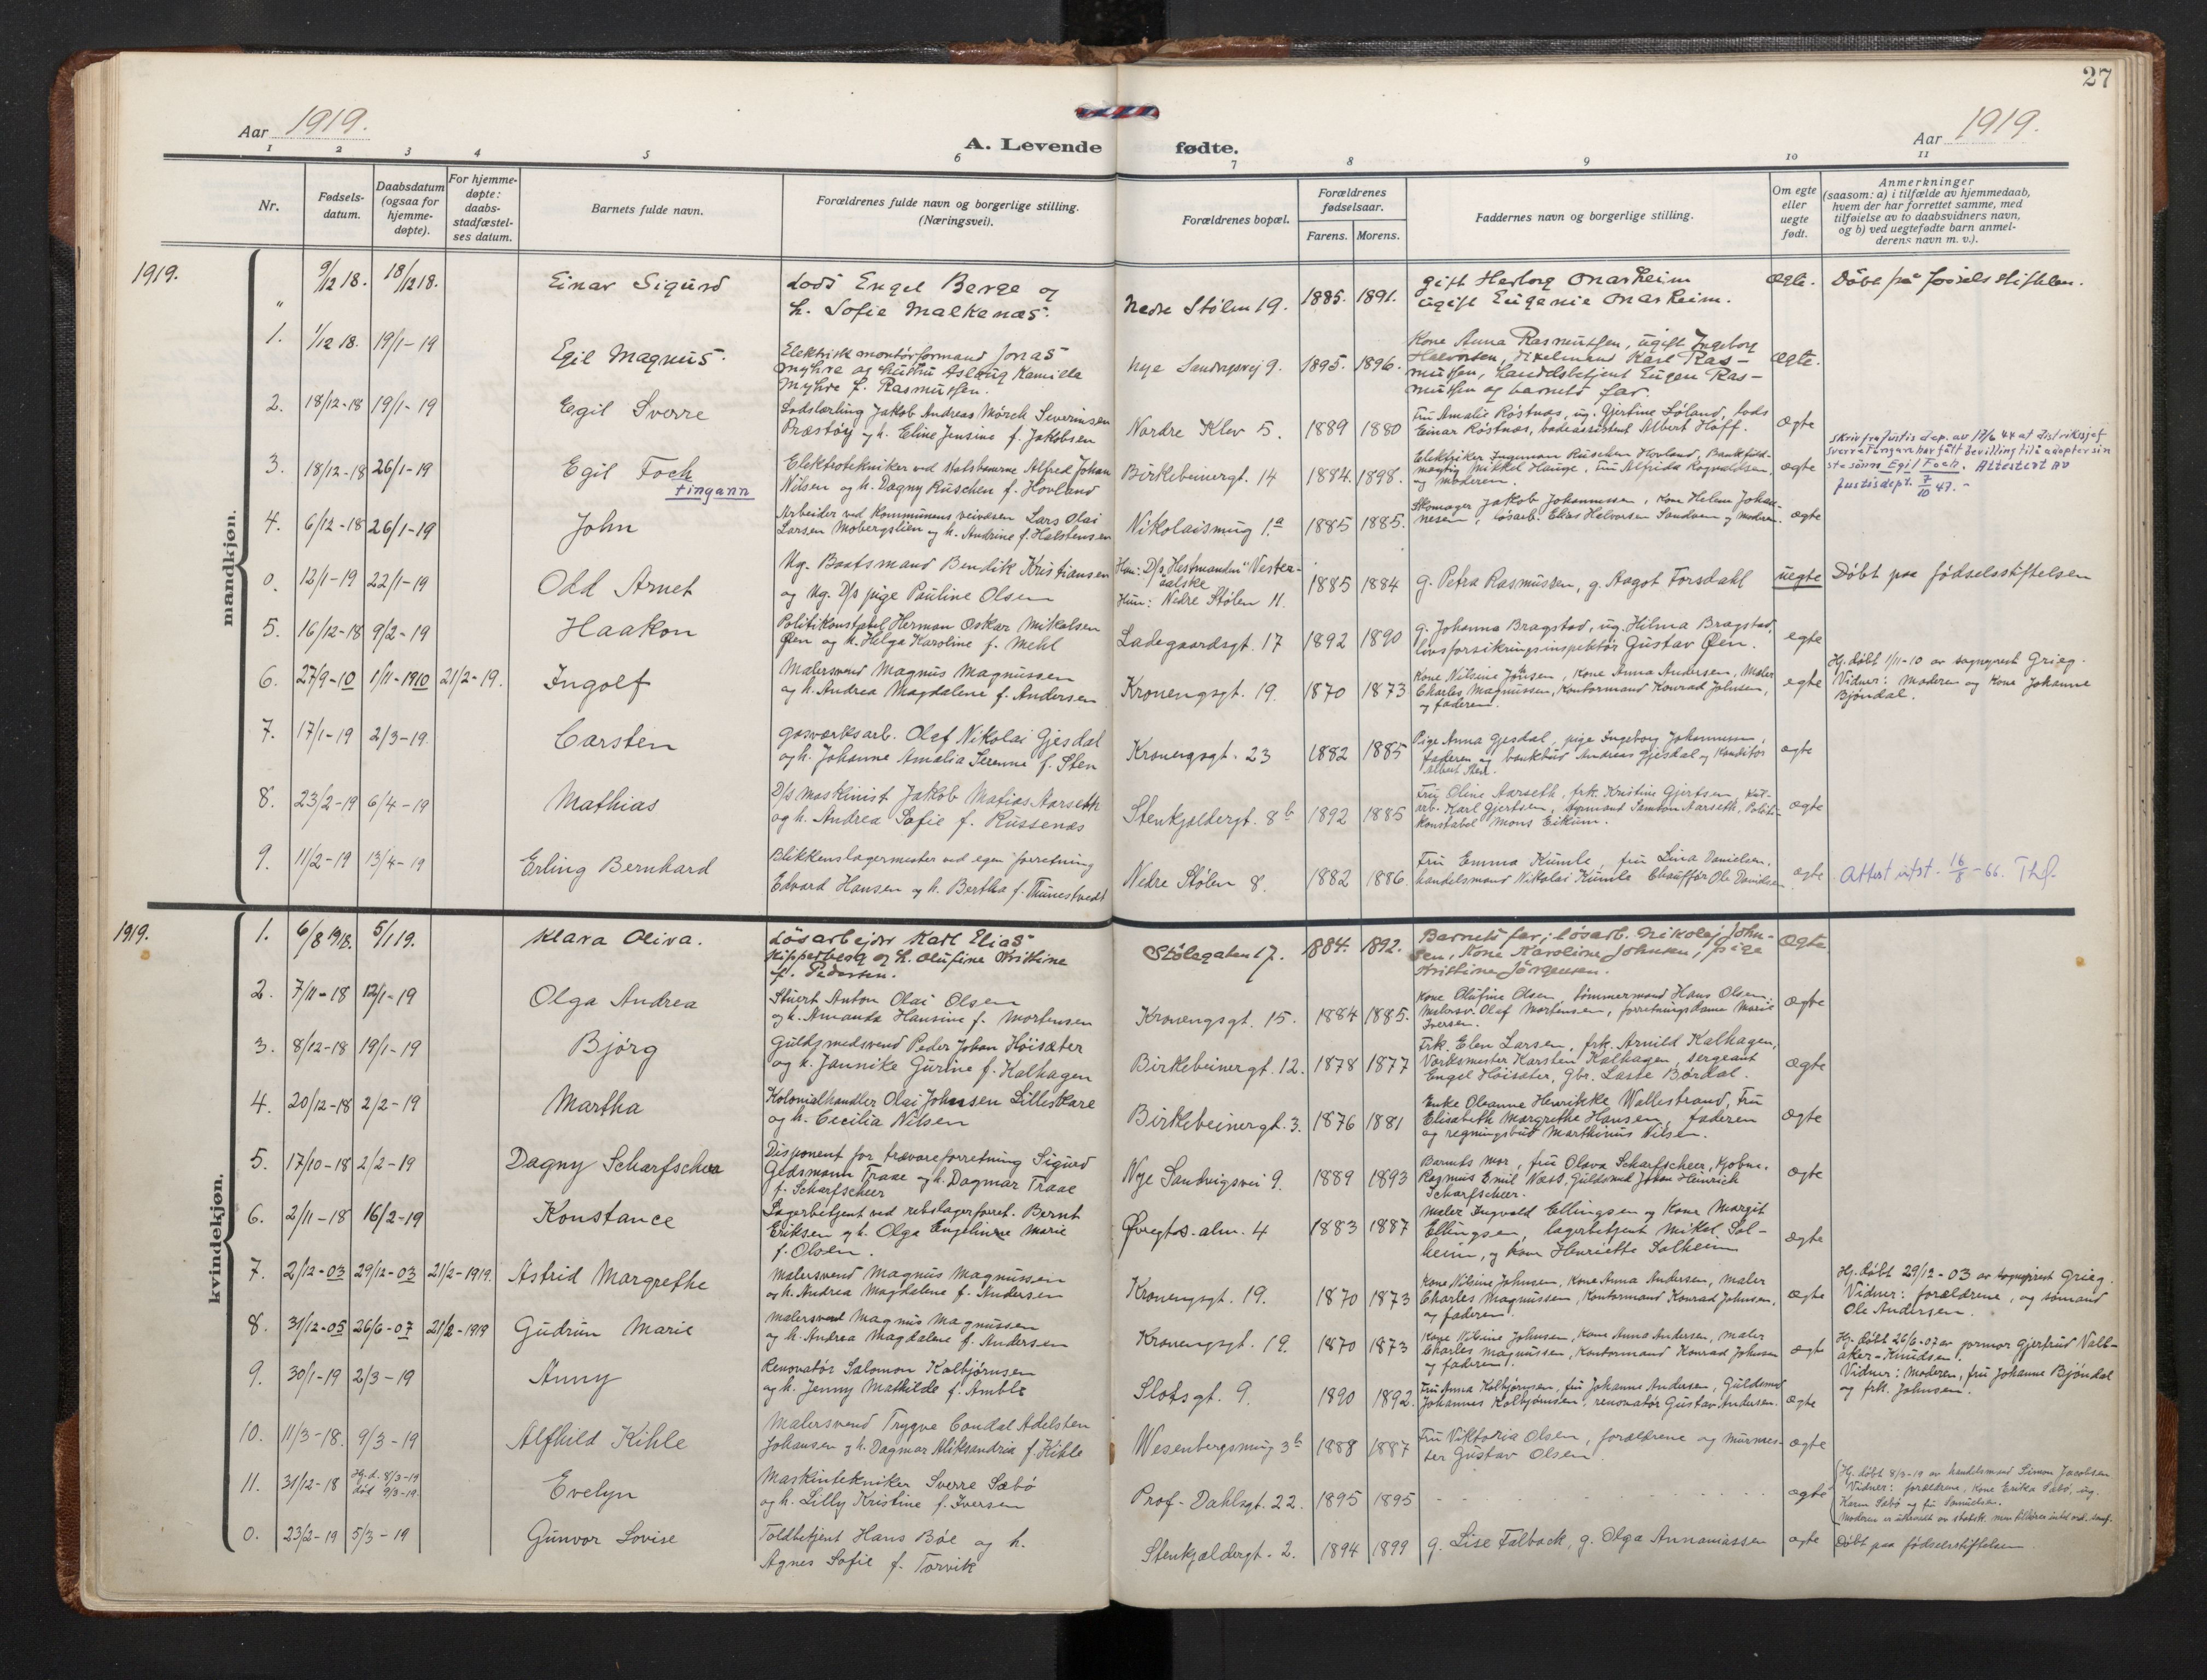 27
Aar 1919.
A. Levende fødte.
Aar 1919.
1 2 3 4 5 6 7 8 9 10 11
Nr.
Fødsels-datum.
Daabsdatum (ogsaa for hjemme-døpte).
For hjemme-døpte: daabs-stadfæstel-ses datum.
Barnets fulde navn.
Forældrenes fulde navn og borgerlige stilling. (Næringsvei).
Forældrenes bopæl.
Forældrenes fødselsaar.
Farens. Morens.
Faddernes navn og borgerlige stilling.
Om egte eller uegte født.
Anmerkninger
(saasom: a) i tilfælde av hjemmedaab,
hvem der har forrettet samme, med
tilføielse av to daabsvidners navn,
og b) ved uegtefødte barn anmel-
derens navn m. v.).
mandkjøn.
1919.
" 9/12 18. 18/12 18. Einar Sigurd
Lods Engel Berge og
h. Sofie Malkenæs.
Nedre Stølen 19. 1885. 1891.
gift Herborg Onarheim
ugift Eugenie Onarheim.
Ægte. Döbt på födselsstiftelsen.
1. 1/12 18. 19/1-19 Egil Magnus.
Elektrisk montörformand Jonas
Myhre og hustru Aslaug Kamilla
Myhre f. Rasmussen.
Nye Sandvigsvej 9. 1895. 1896.
Kone Anna Rasmussen, ugift Ingeborg
Halvorsen, Karl Ras-
mussen, handelsbetjent Eugen Ras-
mussen og barnets far.
ægte.
2. 18/12-18 19/1-19 Egil Sverre
Lodslærling Jakob Andreas Mosch Severinsen
Præstöy og h. Eline Jensine f. Jakobsen
Nordre Klev 5. 1889 1880
Fru Amalie Röstnæs, ug. Gjertine Löland, lods
Einar Röstnæs, badeassistent Albert Hoff.
ægte
3. 18/12-18 26/1-19 Egil Foch
Fingann
Elektrotekniker ved statsbanerne Alfred Johan
Nilsen og h. Dagny Ruschen f. Hovland
Birkebeinergt. 14 1884. 1898.
Elektriker Ingemann Ruschen Hovland, Bankfuld-
mægtig Mikkel Hauge, fru Alfrida Rognaldsen,
og moderen.
ægte
skriv fra Justis dep. av 17/6 44 at distriktssjef
Sverre Fingann har fått bevilling til å adoptere sin
stesönn Egil Foch. Attestert av
Justisdept. 7/10 47. -
4. 6/12-18 26/1-19 John
Arbeider ved kommunens veivæsen Lars Olai
Larsen Mobergslien og h. Andrine f. Halstensen
Nikolaismug 1.a 1885 1885.
Skomager Jakob Johannessen, kone Helene Johan-
nesen, løsarb. Elias Halvorsen Sandven og moderen.
ægte
0. 12/1-19 22/1-19 Odd Arnet
Ug. Baatsmand Bendik Kristiansen
og Ug. D/s pige Pauline Olsen
Han: D/s "Hestmanden" Vester-
aalske
Hun: Nedre Stølen 11.
1885 1884
g. Petra Rasmussen, g. Aagot Forsdahl
uegte Döbt paa födselsstiftelsen
5. 16/12-18 9/2-19 Haakon
Politikonstabel Herman Oskar Mikalsen
Øen og h. Helga Karoline f. Mehl
Ladegaardsgt. 17 1892 1890
g. Johanna Bragstad, ug. Hilma Bragstad,
livsforsikringsinspektör Gustav Øen.
egte
6. 27/9-10 1/11-1910 21/2-19. Ingolf
Malersvend Magnus Magnussen
og h. Andrea Magdalene f. Andersen
Kronengsgt. 19. 1870 1873
Kone Nilsine Johnsen, kone Anna Andersen, Maler
Charles Magnussen, kontormand Konrad Johnsen,
og faderen.
egte
Hj. döbt 1/11-10 av sognepræst Grieg.
Vidner: Moderen og kone Johanne
Bjöndal.
7. 17/1-19 2/3-19 Carsten
Gasværksarb. Olef Nikolai Gjesdal
og h. Johanne Amalia Serenne f. Sten
Kronengsgt. 23 1882 1885
Pige Anna Gjesdal, pige Ingeborg Johannessen,
faderen og bankbud Andreas Gjesdal og konditor
Albert Sten.
ægte
8. 23/2-19 6/4-19 Mathias
D/s maskinist Jakob Matias Aarseth
og h. Andrea Sofie f. Russenes
Stenkjeldergt. 8b 1892 1885
Fru Oline Aarseth, frk. Kristine Gjertsen,
arb. Karl Gjertsen, styrmand Samson Aarseth, Politi-
konstabel Mons Eikum.
ægte
9. 11/2-19 13/4-19 Erling Bernhard
Blikkenslagermester ved egen forretning
Edvard Hansen og h. Bertha f. Thunestvedt
Nedre Stølen 8. 1882 1886.
Fru Emma Kumle, fru Lina Danielsen,
handelsmand Nikolai Kumle Chauffør Ole Danielsen
ægte Attest utst. 16/8-66. Thf.
kvindekjøn.
1919.
1. 6/8 1918. 5/1 19. Klara Oliva.
Lösarbejder Karl Elias
Kipperberg og h. Olufine Kristine
f. Pedersen.
Stölegaten 17. 1884. 1892.
Barnets far; lösarb. Nikolaj John-
sen, Kone Karoline Johnsen, pige
Kristine Jörgensen.
Ægte
2. 7/11-18 12/1-19 Olga Andrea
Stuert Anton Olai Olsen
og h. Amanda Hansine f. Mortensen
Kronengsgt. 15. 1884 1885.
Kone Olufine Olsen, tömmermand Hans Olsen,
Malersv. Olaf Mortensen, forretningsdame Marie
Iversen.
ægte
3. 8/12-18 19/1-19 Bjørg
Guldsmedsvend Peder Johan Höisæter
og h. Jannike Gurine f. Kalhagen
Birkebeinergt. 12. 1878 1877
Frk. Elen Larsen, frk. Arnild Kalhagen,
Værksmester Karsten Kalhagen, sergeant
Engel Höisæter, Gbr. Lasse Bördal.
ægte
4. 20/12-18 2/2-19 Martha
Kolonialhandler Olai Johnsen Lilleskare
og h. Cecilia Nilsen
Birkebeinergt. 3. 1876 1881
Enke Oleanne Henrikke Wallestrand, Fru
Elisabeth Margrethe Hansen, faderen
og regningsbud Marthinus Nilsen.
ægte
5. 17/10-18 2/2-19 Dagny Scharfscheer
Disponent for trævareforretning Sigurd
Gedsmann Traae og h. Dagmar Traae
f. Scharfscheer
Nye Sandvigsvei 9. 1889 1893
Barnets mor, fru Olava Scharfscheer, Kjøbm.
Rasmus Emil Næss, Guldsmed Johan Heinrich
Scharfscheer.
ægte
6. 2/11-18 16/2-19 Konstance
Lagerbetjent ved rebslagerforret. Bernt
Eriksen og h. Olga Engelinne Marie
f. Olsen.
Øvregts. alm. 4 1883 1887
Maler Ingvald Ellingsen og kone Margit
Ellingsen, lagerbetjent Mikal Sol-
heim, og kone Henriette Solheim
ægte
7. 2/12-03 29/12-03 21/2-1919. Astrid Margrethe
Malersvend Magnus Magnussen
og h. Andrea Magdalene f. Andersen
Kronengsgt. 19. 1870 1873
Kone Nilsine Johnsen, kone Anna Andersen, maler
Charles Magnussen, kontormand Konrad Johnsen,
og faderen.
ægte
Hj. döbt 29/12-03 av sognepræst Grieg.
Vidner: forældrene, og sömand
Ole Andersen.
8. 31/12-05 26/6-07 21/2-1919 Gudrun Marie
Malersvend Magnus Magnussen
og h. Andrea Magdalene f. Andersen
Kronengsgt. 19. 1870 1873
Kone Nilsine Johnsen, Kone Anna Andersen, maler
Charles Magnussen, kontormand Konrad Johnsen
og faderen.
ægte
Hj. döbt 26/6-07 av jormor Gjertrud Valb-
aker-Knudsen.
Vidner: Moderen, fru Johanne Bjöndal
og frk. Johnsen.
9. 30/1-19 2/3-19 Anny
Renovatør Salomon Kolbjørnsen
og h. Jenny Mathilde f. Amble
Slotsgt. 9. 1890 1892.
Fru Anna Kolbjørnsen, fru Johanne Andersen, Guldsmed
Johannes Kolbjørnsen, renovatør Gustav Andersen.
ægte
10. 11/3-18. 9/3-19 Alfhild Kihle
Malersvend Trygve Condal Adelsten
Johansen og h. Dagmar Aleksandria f. Kihle
Wesenbergsmug 3b 1888 1887
Fru Viktoria Olsen, forældrene og murmes-
ter Gustav Olsen.
ægte
11. 31/12-18 Hj. d. 8/3-19 död 9/3-19. Evelyn
Maskintekniker Sverre Sæbö
og h. Lilly Kristine f. Iversen
Prof. Dahlsgt. 22. 1895 1895
ægte
Hj. döbt 8/3-19 av handelsmand Simon Jacobsen
Vidner: forældrene, kone Erika Sæbö, ug.
Karen Sæbö og fru Danielsen.
Moderen er utmeldt av statsk.
0. 23/2-19 5/3-19 Gunvor Lovise
Toldbetjent Hans Böe og h.
Agnes Sofie f. Torvik
Stenkjeldergt. 2. 1894 1899
g. Lise Falback, g. Olga Annaniassen
ægte Döbt paa fødselsstiftelsen